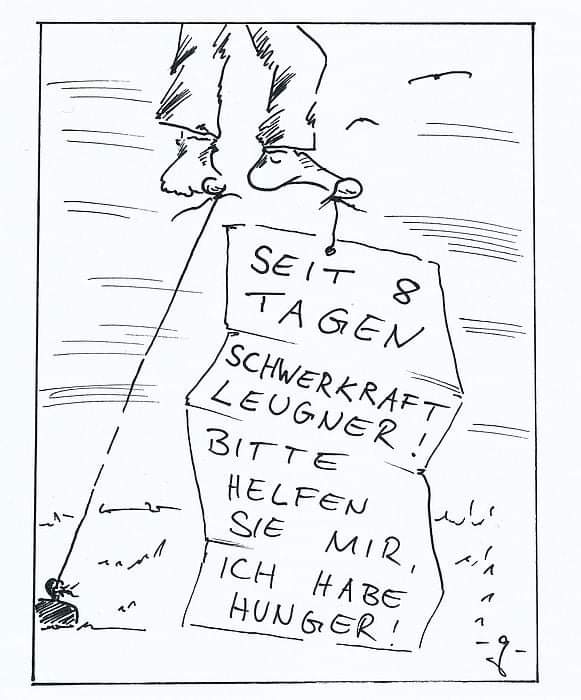 SEIT 8
TAGEN
SCHWERKRAFT
LEUGNER!
BITTE
HELFEN
SIE MIR,
ICH HABE
HUNGER!
-g-